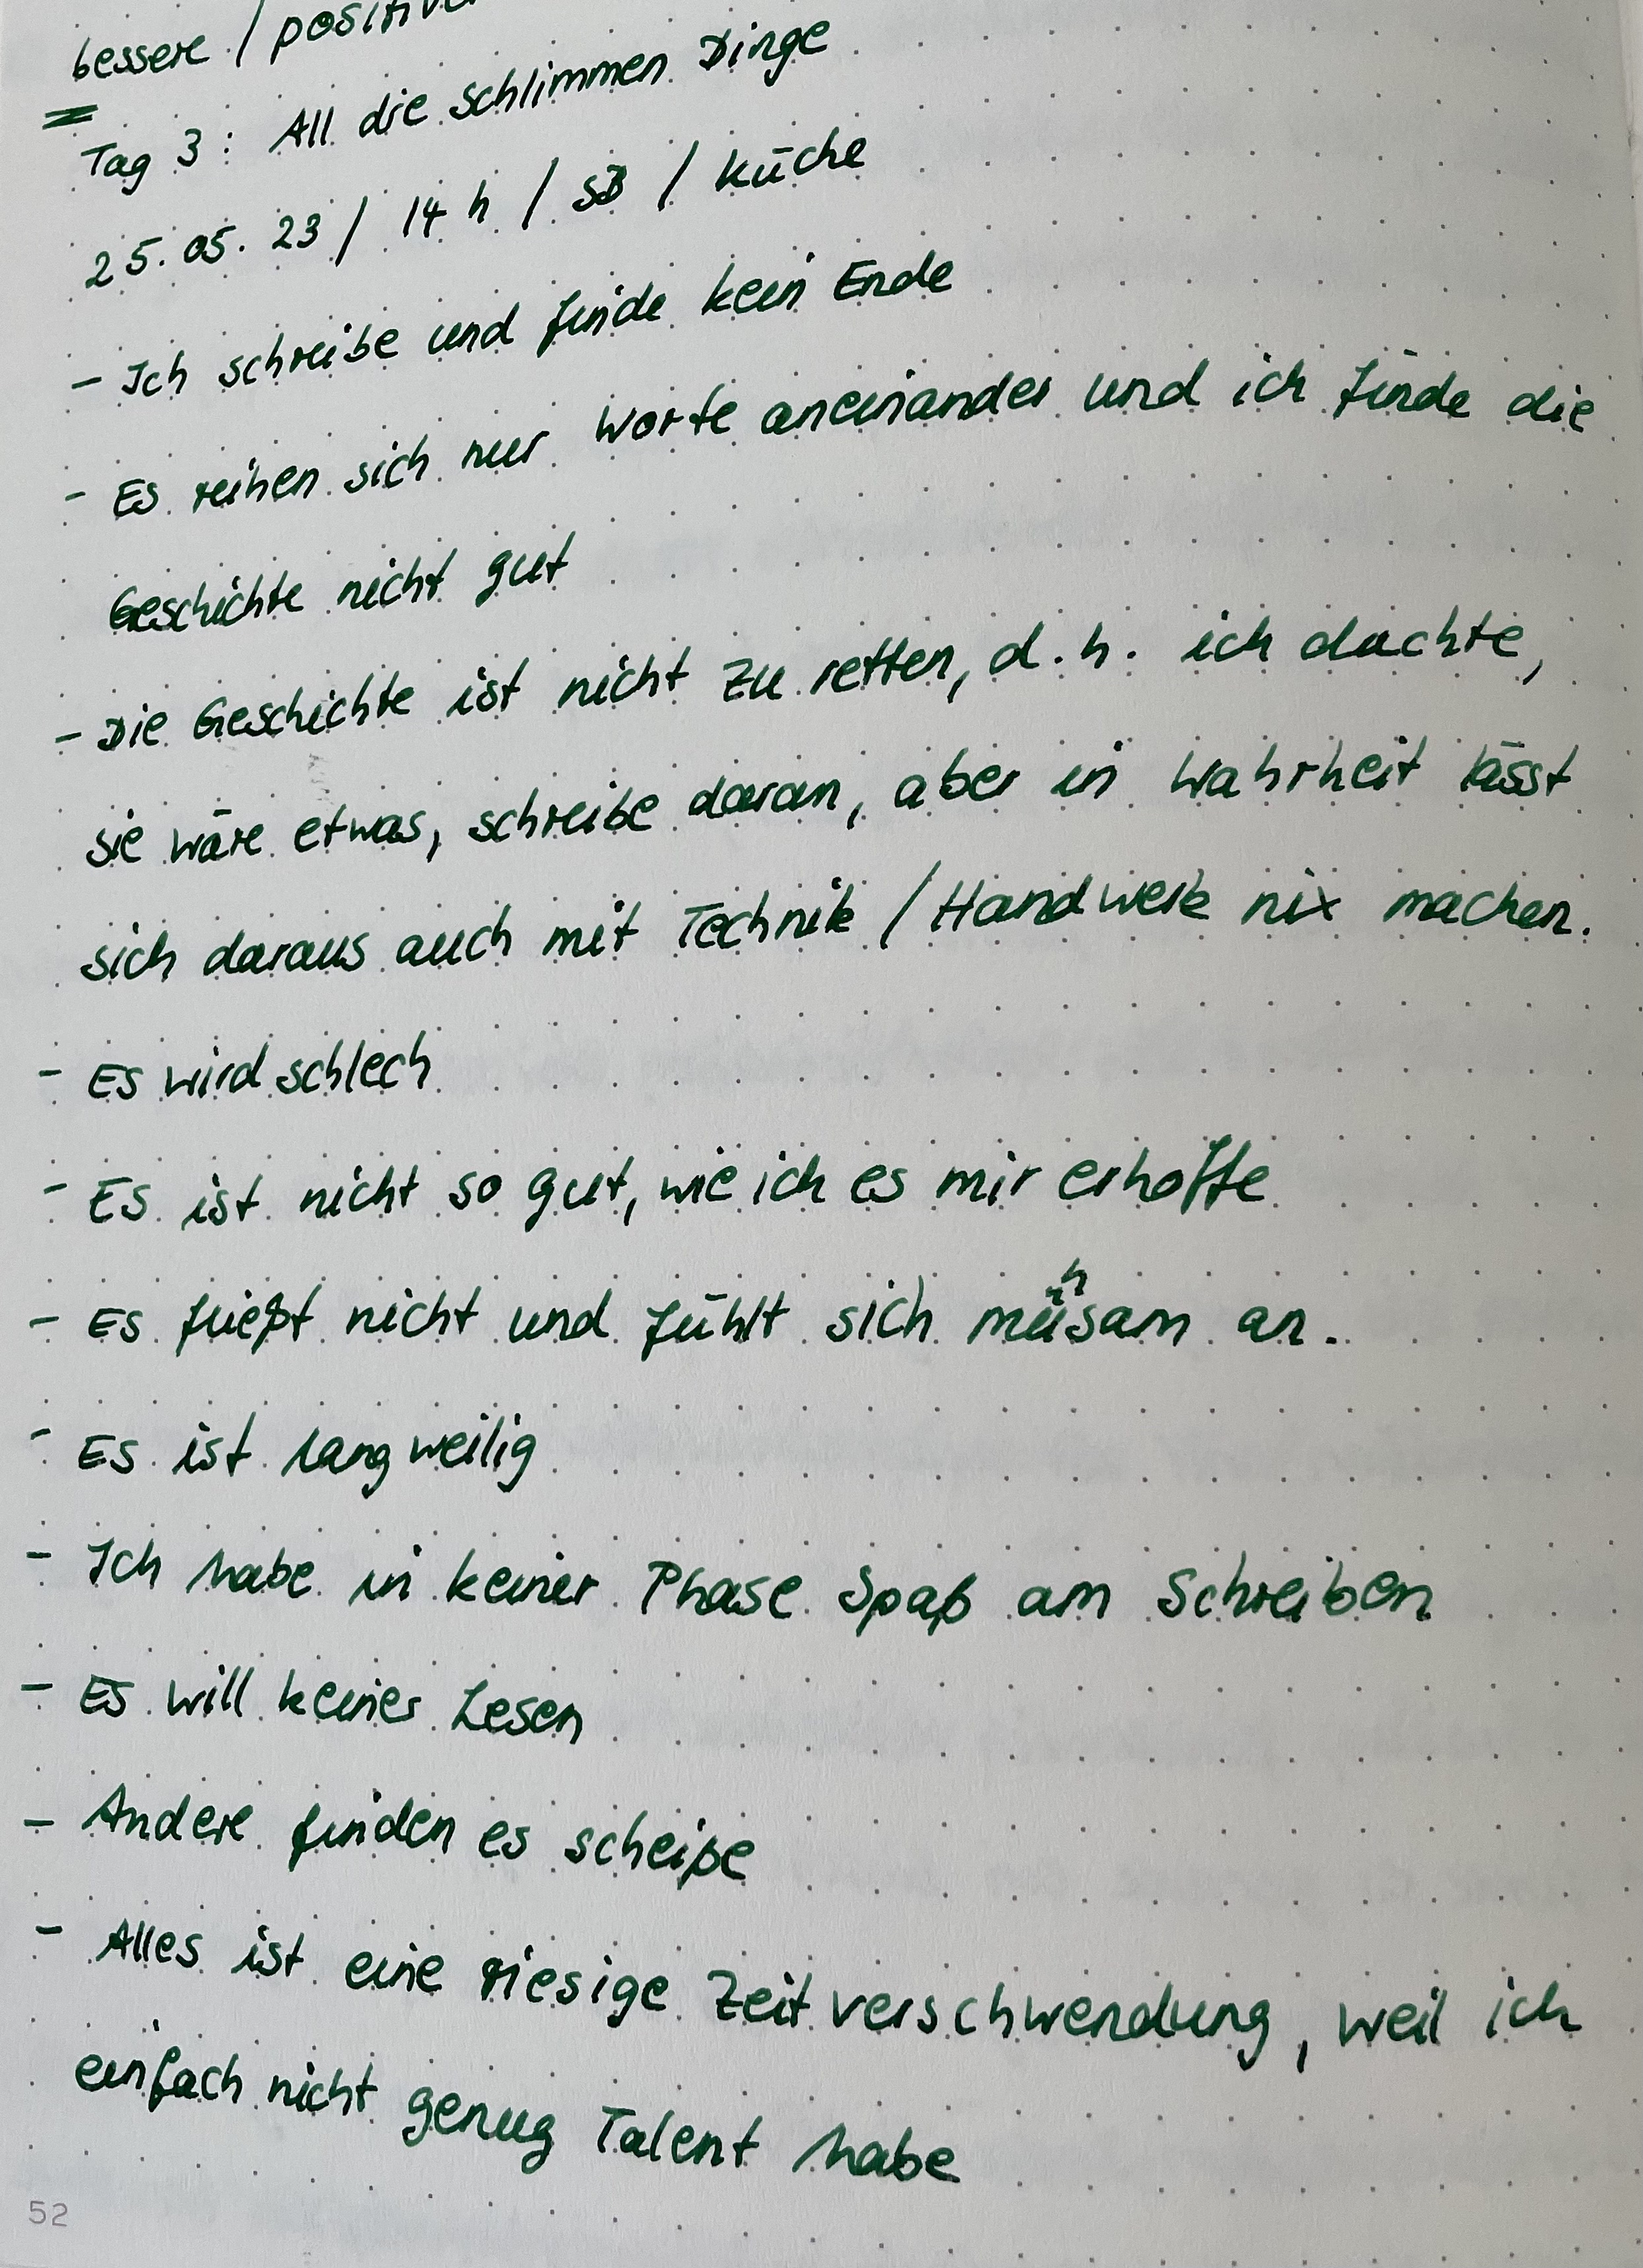 bessere /
Tag 3: All die schlimmen Dinge
25.05.23 / 14 h / SB / Küche
- Ich schreibe und finde kein Ende
- Es reihen sich nur Worte aneinander und ich finde die
Geschichte nicht gut
- Die Geschichte ist nicht zu retten, d.h. ich dachte,
sie wäre etwas, schreibe daran, aber in Wahrheit lässt
sich daraus auch mit Technik / Handwerk nix machen.
- Es wird schlech
- Es ist nicht so gut, wie ich es mir erhoffe
- Es fließt nicht und fühlt sich mühsam an.
- Es ist langweilig
- Ich habe in keiner Phase Spaß am Schreiben
- Es will keiner Lesen
- Andere finden es scheiße
- Alles ist eine riesige Zeitverschwendung, weil ich
einfach nicht genug Talent habe
52